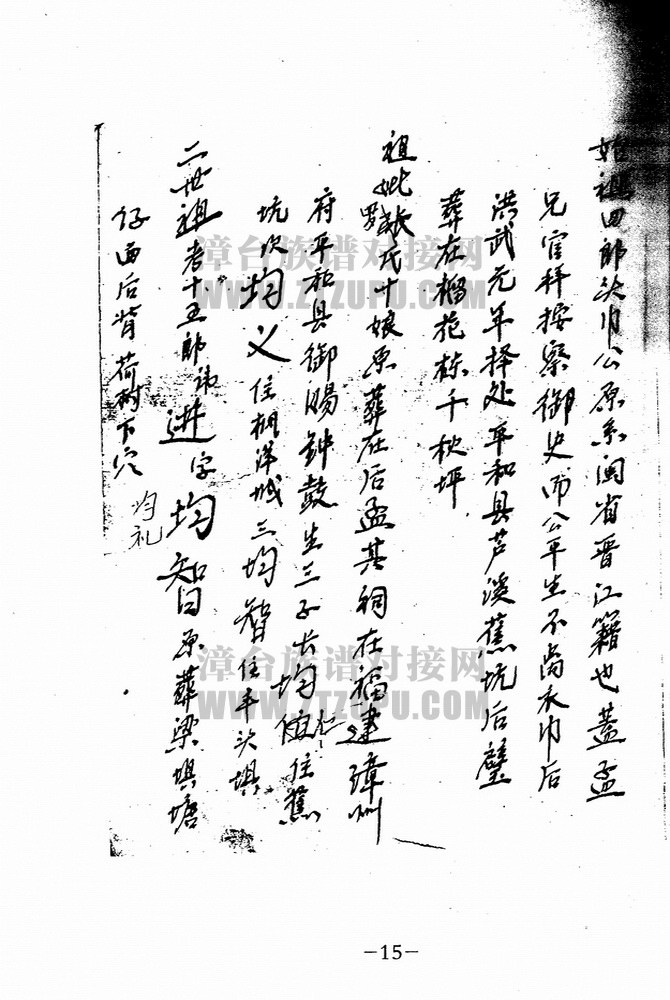 始祖四郎头巾公原系闽省晋江籍也盖孟
兄官拜按察御史而公平生不离衣巾后
洪武元年择处平和县芦溪蕉坑后壁
葬在榴花栋千秋坪
祖妣张氏十娘原葬在后孟其祠在福建璋州
府平和县御赐钟鼓生三子长均仁住蕉
坑次均义住枫洋城三均智住丰头埧
二世祖考十五郎讳进字均智曰原葬梁埧塘
仔面后背荷树下穴
均礼
漳台族谱对接网
WWW.ZTZUPU.COM
漳台族谱对接网
WWW.ZTZUPU.COM
-15-